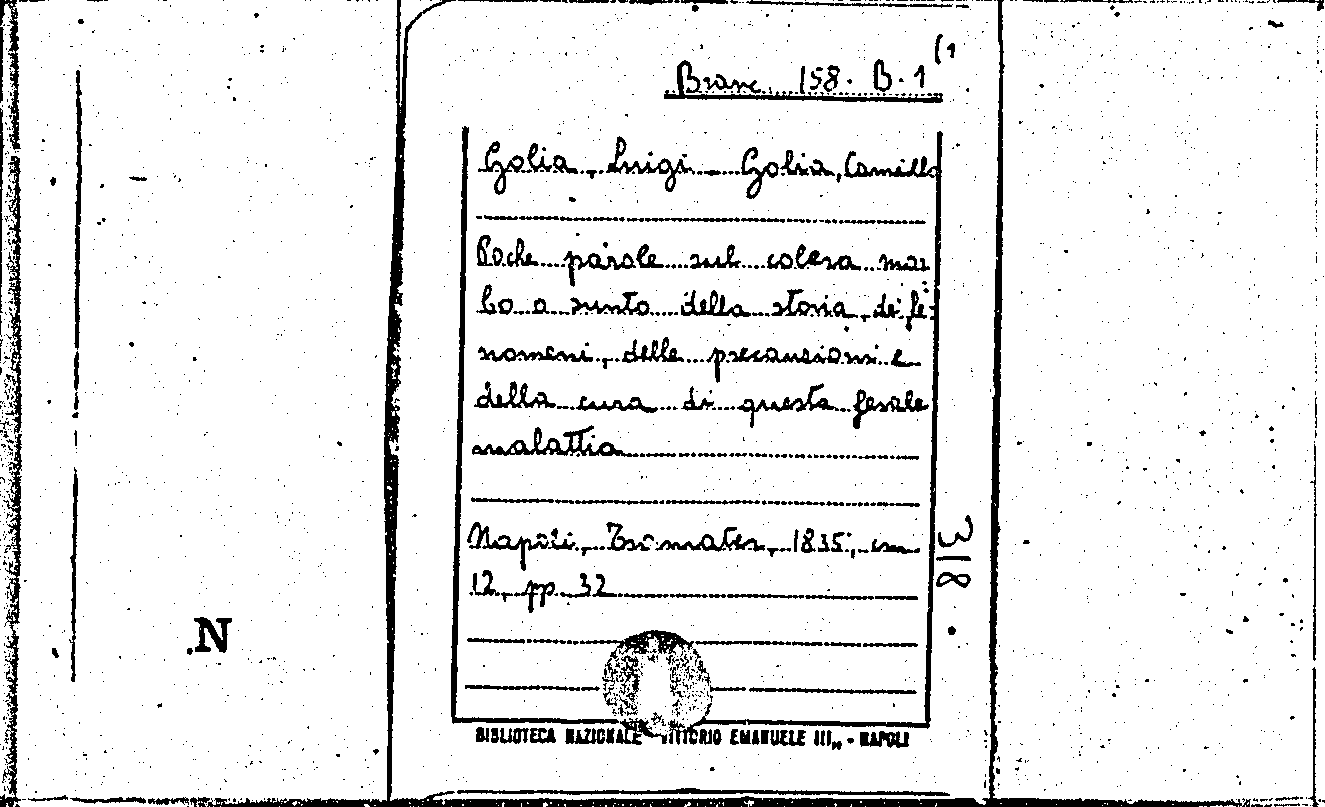 (1
Branc 158. B. 1
Golia, Luigi - Golia, Camillo
Poche parole sul colera mor
bo o sunto della storia, dei fe-
nomeni, delle precauzioni e
della cura di questa ferale
malattia
Napoli, Tromater, 1835, in
12, pp. 32
318
N
BIBLIOTECA NAZIONALE VITTORIO EMANUELE III„ - NAPOLI